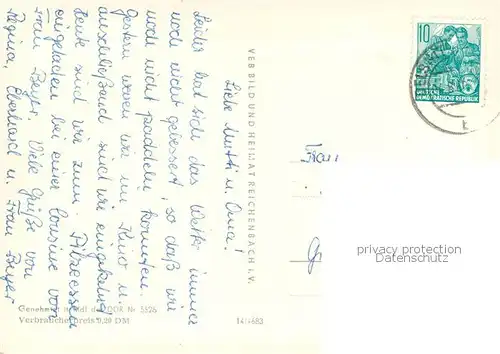 Liebe Mutti u. Oma!
Leider hat sich das Wetter immer
noch nicht gebessert, so daß wir
noch nicht paddeln konnten.
Gestern waren wir im Kino u.
anschließend sind wir eingekehrt
Heute sind wir zum Pilzessen
eingeladen bei einer Cousine von
Frau Beyer. Viele Grüße von
Regina, Eberhard u. Frau Beyer
Genehmigt DDR Nr. 5526
Verbraucherpreis 0,20 DM
VEB BILD UND HEIMAT REICHENBACH I. V.
10
DEUTSCHE
DEMOKRATISCHE REPUBLIK
Frau
privacy protection
Datenschutz